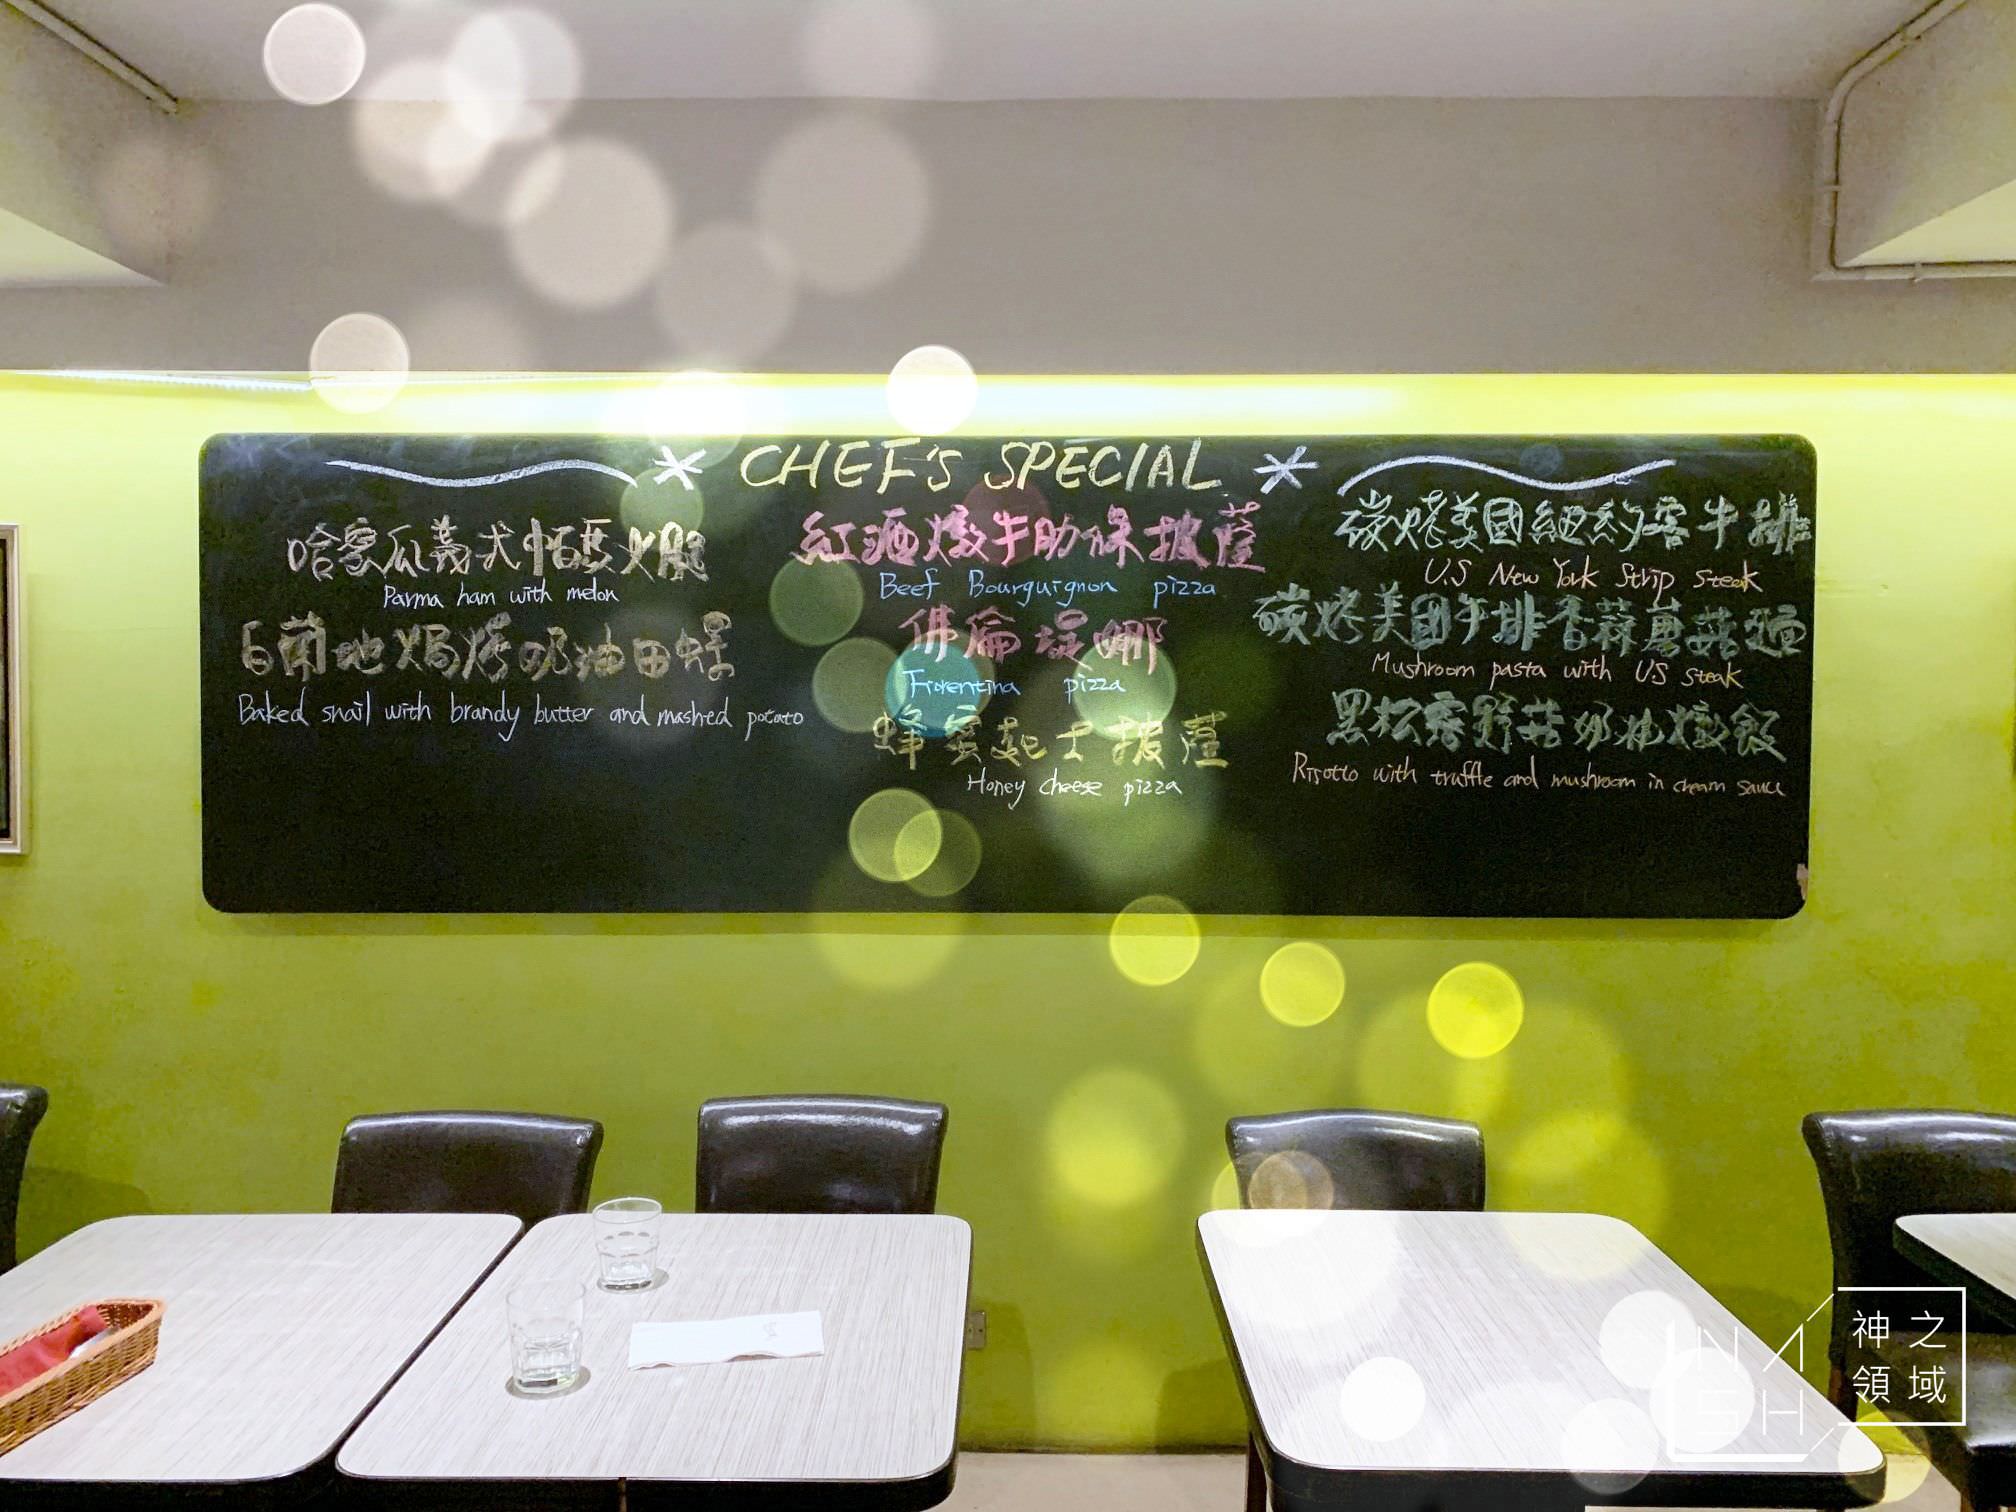 CHEF'S SPECIAL
哈蜜瓜義式帕瑪火腿
Parma ham with melon
白蘭地焗烤奶油田螺
Baked snail with brandy butter and mashed potato
紅酒燉牛肋條披薩
Beef Bourguignon pizza
佛倫堤娜
Fiorentina pizza
蜂蜜起士披薩
Honey cheese pizza
碳烤美國紐約客牛排
U.S New York Strip steak
碳烤美國牛排香蒜蘑菇麵
Mushroom pasta with U.S steak
黑松露野菇奶油燉飯
Risotto with truffle and mushroom in cream sauce
NASH
神之
領域